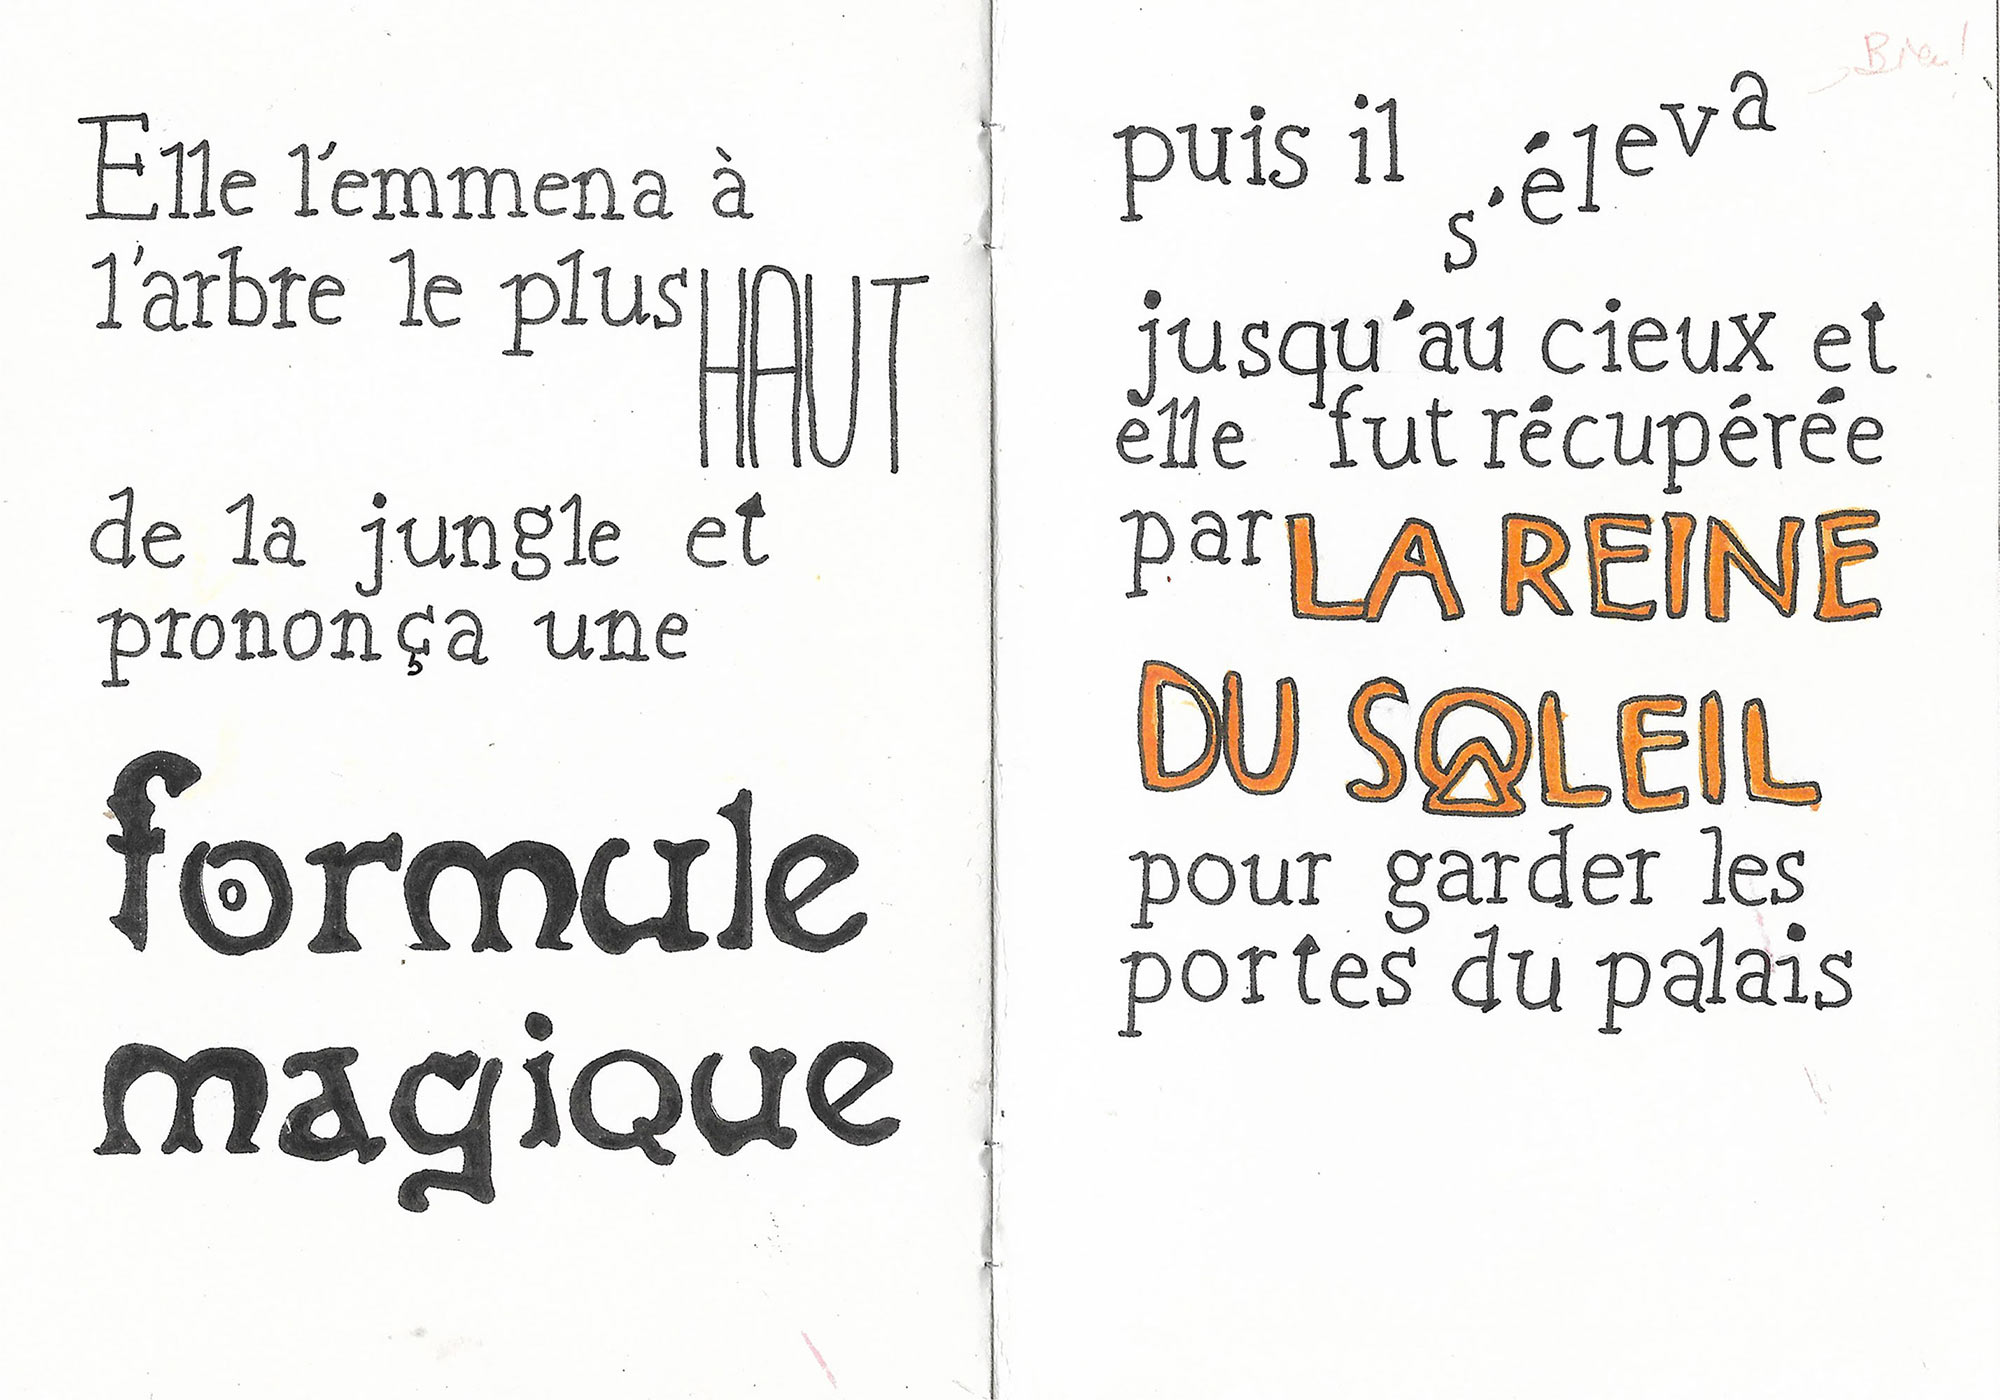 Elle l'emmena à
l'arbre le plus HAUT
de la jungle et
prononça une
formule
magique
Bien!
puis il s'éleva
jusqu'au cieux et
elle fut récupérée
par LA REINE
DU SOLEIL
pour garder les
portes du palais